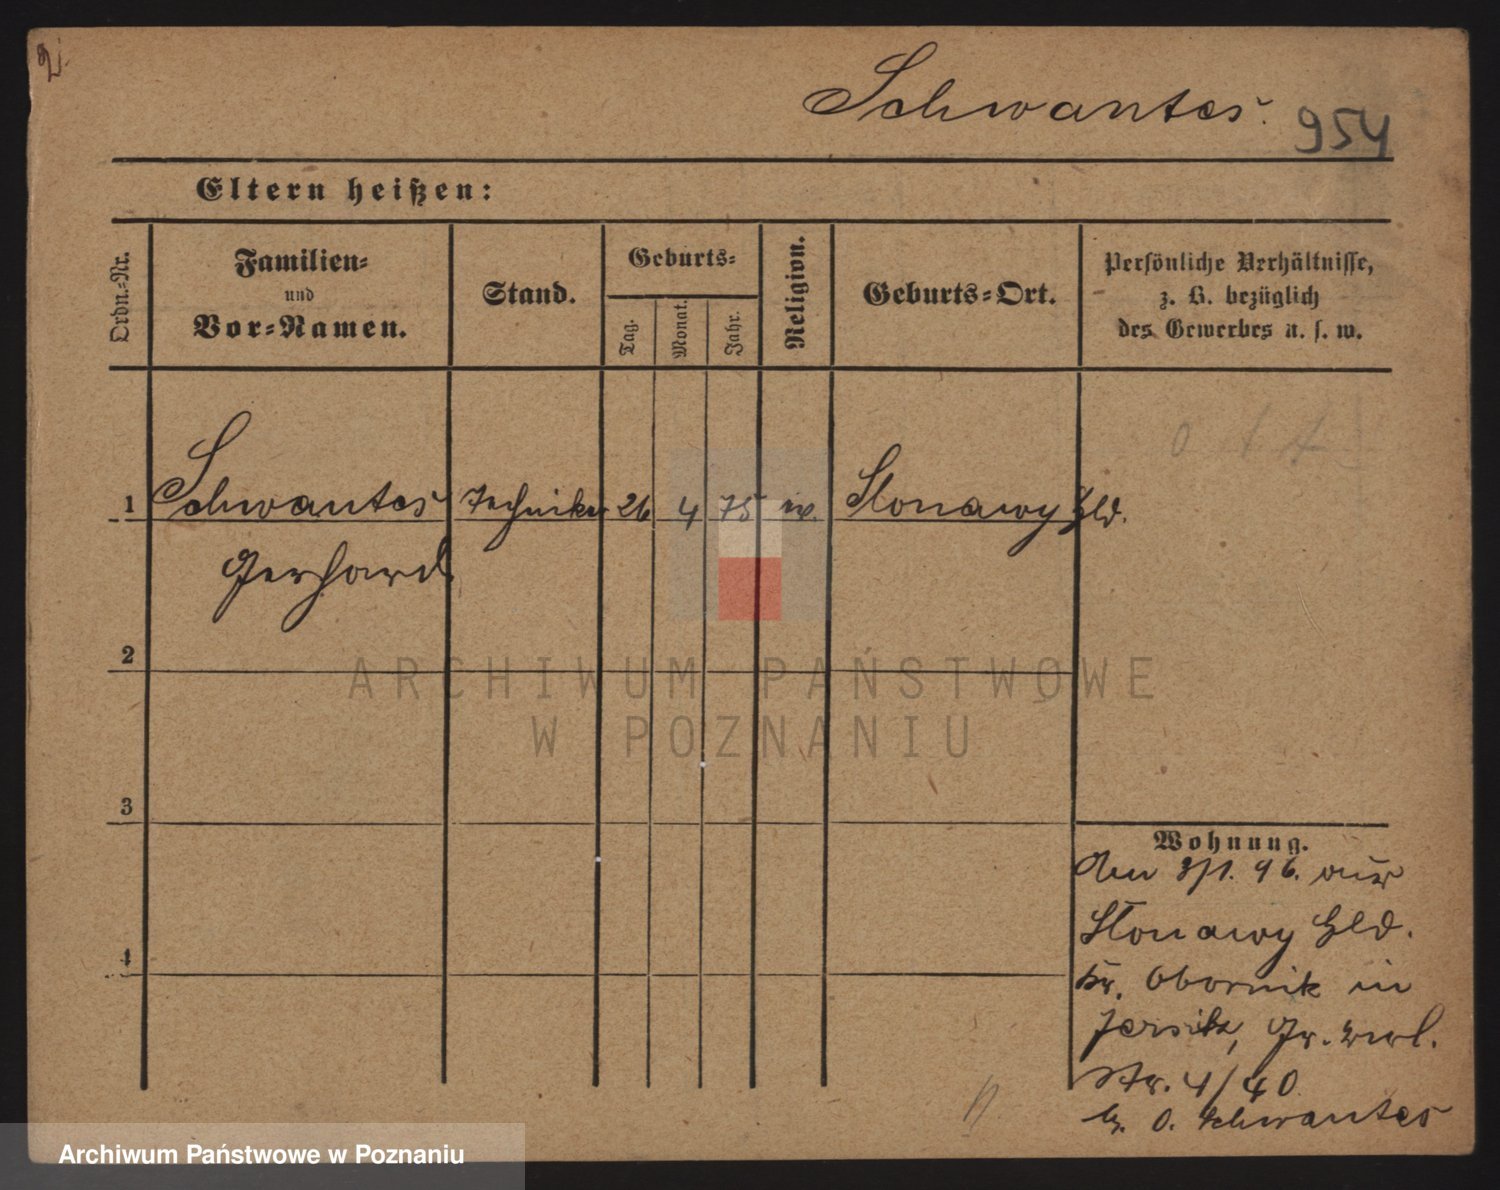 Schwantes.
954
Eltern heißen:
Ordn.-Nr.
Familien-
und
Vor-Namen.
Stand.
Geburts-
Tag.
Monat.
Jahr.
Religion.
Geburts-Ort.
Persönliche Verhältnisse,
z. B. bezüglich
des Gewerbes u. s. w.
1 Schwantes Techniker 26 4 75 ev. Slonawy Hld.
Gerhard.
2
3
4
Wohnung.
Den 3/1. 96. aus
Slonawy Hld.
Kr. Obornik in
Jersitz, Gr. Berl.
Str. 4/40
b. O. Schwantes
ARCHIWUM PAŃSTWOWE
W POZNANIU
Archiwum Państwowe w Poznaniu